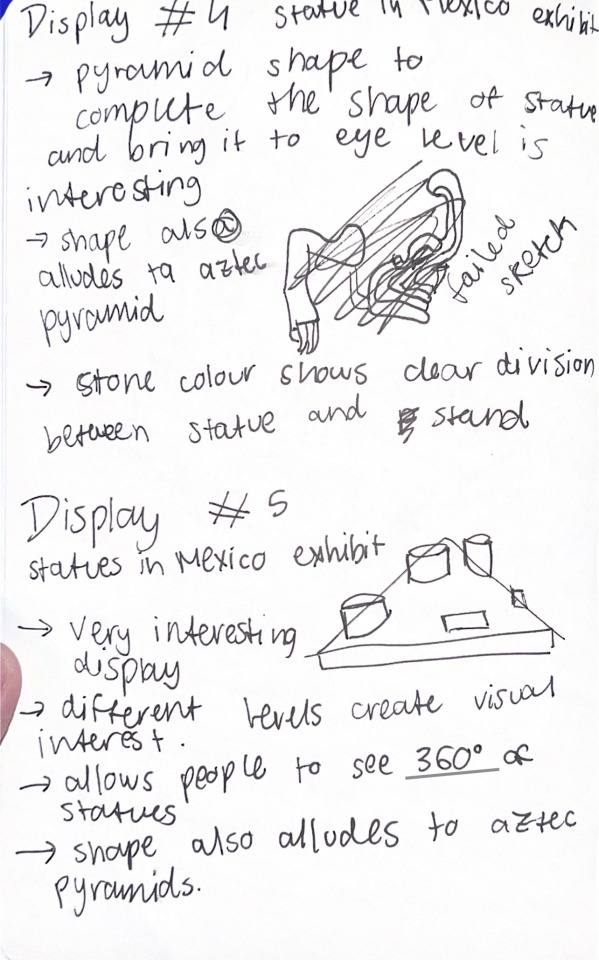 Display #4 statue in Mexico exhibit
→ pyramid shape to
complete the shape of statue
and bring it to eye level is
interesting
→ shape also
alludes ta aztec
pyramid
failed
sketch
→ stone colour shows clear division
between statue and stand
Display #5
statues in Mexico exhibit
→ very interesting
display
→ different levels create visual
interest.
→ allows people to see 360° of
statues
→ shape also alludes to aztec
pyramids.